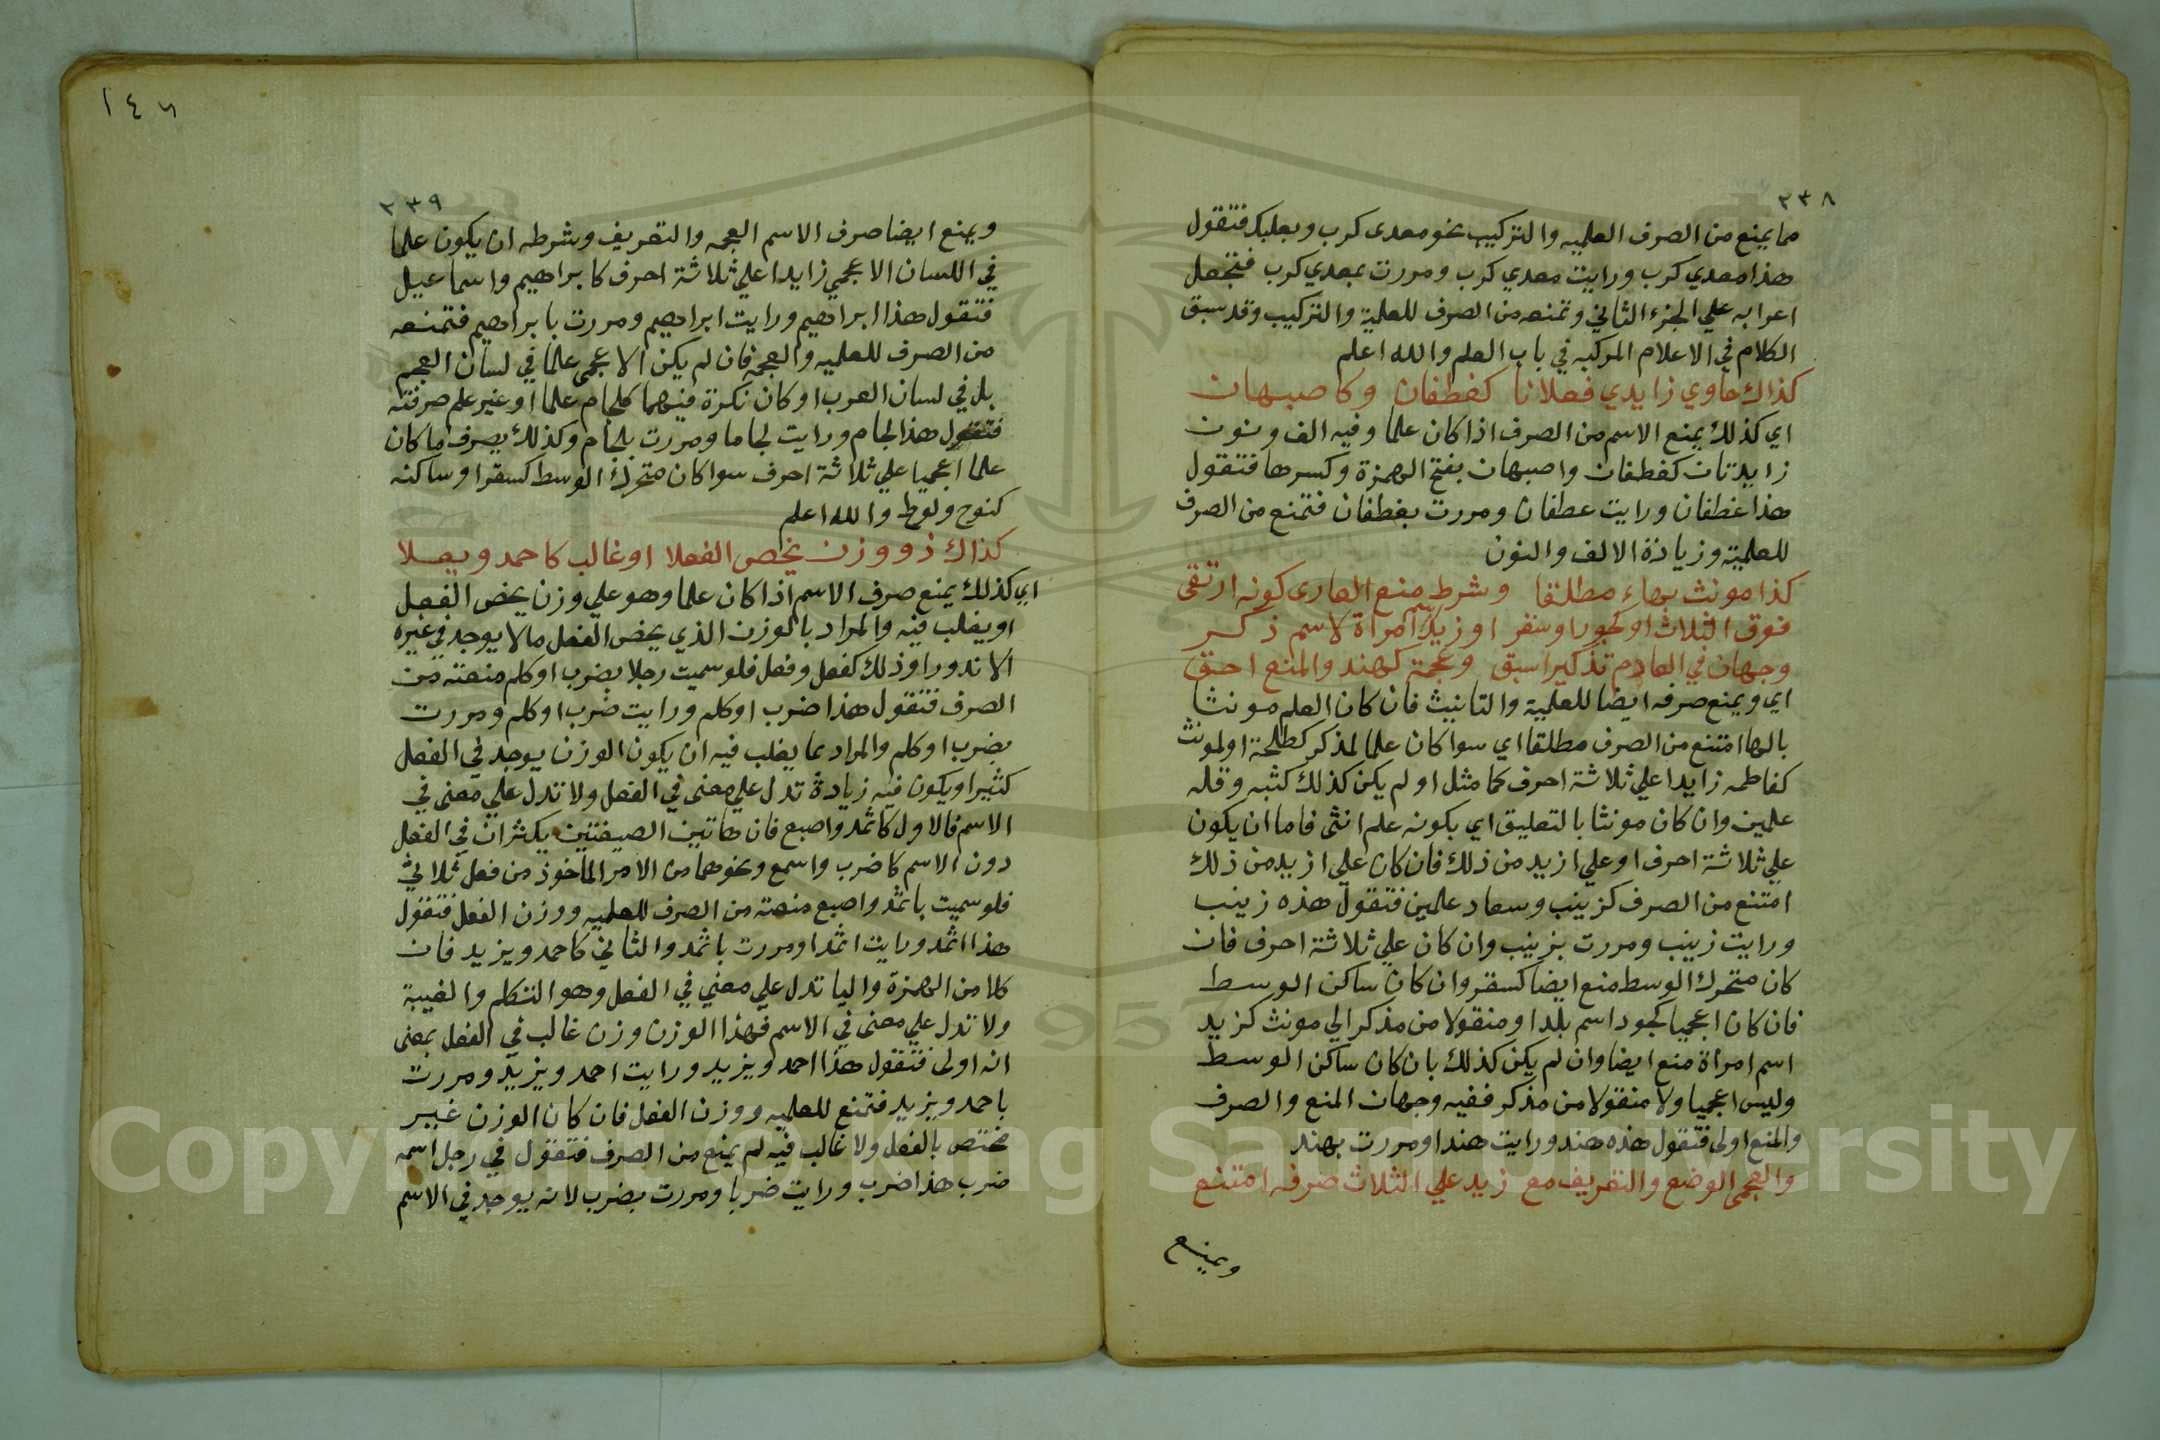 ٢٣٨
مما يمنع من الصرف العلميه والتركيب نحو معدى كرب وبعلبك فتقول
هذا معدي كرب ورايت معدي كرب ومررت بمعدي كرب فتجعل
اعرابه علي الجزء الثاني وتمنعه من الصرف للعلمية والتركيب وقد سبق
الكلام في الاعلام المركبه في باب العلم والله اعلم
كذاك حاوي زايدي فعلانا كغطفان وكاصبهان
اي كذلك يمنع الاسم من الصرف اذا كان علما وفيه الف ونون
زايدتان كغطفان واصبهان بفتح الهمزة وكسرها فتقول
هذا غطفان ورايت عطفان ومررت بغطفان فتمنع من الصرف
للعلمية وزيادة الالف والنون
كذا مونث بهاء مطلقا وشرط منع العارى كونه ارتقى
فوق الثلاث او كجور او سقر او زيد اسم امراة لا اسم ذكر
وجهان في العادم تذكيرا سبق وعجمة كهند والمنع احق
اي ويمنع صرفه ايضا للعلمية والتانيث فان كان العلم مونثا
بالها امتنع من الصرف مطلقا اي سوا كان علما لمذكر كطلحة او لمونث
كفاطمه زايدا علي ثلاثة احرف كما مثل او لم يكن كذلك كثبه وقله
علمين وان كان مونثا بالتعليق اي بكونه علم انثى فاما ان يكون
علي ثلاثة احرف او علي ازيد من ذلك فان كان علي ازيد من ذلك
امتنع من الصرف كزينب وسعاد علمين فتقول هذه زينب
ورايت زينب ومررت بزينب وان كان علي ثلاثة احرف فان
كان متحرك الوسط منع ايضا كسقر وان كان ساكن الوسط
فان كان اعجميا كجود اسم بلد او منقولا من مذكر الي مونث كزيد
اسم امراة منع ايضا وان لم يكن كذلك بان كان ساكن الوسط
وليس اعجميا ولا منقولا من مذكر ففيه وجهان المنع والصرف
والمنع اولى فتقول هذه هند ورايت هندا ومررت بهند
والعجمى الوضع والتعريف مع زيد علي الثلاث صرفه امتنع
ويمنع
١٤٦
٢٣٩
ويمنع ايضا صرف الاسم العجمه والتعريف وشرطه ان يكون علما
في اللسان الاعجمي زايدا علي ثلاثة احرف كابراهيم واسماعيل
فتقول هذا ابراهيم ورايت ابراهيم ومررت بابراهيم فتمنعه
من الصرف للعلميه والعجمه فان لم يكن الاعجمى علما في لسان العجم
بل في لسان العرب او كان نكرة فيهما كلجام علما او غير علم صرفته
فتقول هذا لجام ورايت لجاما ومررت بلجام وكذلك يصرف ما كان
علما اعجميا علي ثلاثة احرف سوا كان متحرك الوسط كسقر او ساكنه
كنوح ولوط والله اعلم
كذاك ذو وزن يخص الفعلا او غالب كاحمد ويعلا
اي كذلك يمنع صرف الاسم اذا كان علما وهو علي وزن يخص الفعل
او يغلب فيه والمراد بالوزن الذي يخص الفعل ما لا يوجد في غيره
الا ندورا وذلك كفعل وفعل فلو سميت رجلا بضرب او كلم منعته من
الصرف فتقول هذا ضرب او كلم ورايت ضرب او كلم ومررت
بضرب او كلم والمراد بما يغلب فيه ان يكون الوزن يوجد في الفعل
كثيرا ويكون فيه زيادة تدل علي معنى في الفعل ولا تدل علي معنى في
الاسم فالاول كاثمد واصبع فان هاتين الصيغتين يكثران في الفعل
دون الاسم كاضرب واسمع ونحوهما من الامر الماخوذ من فعل ثلاثي
فلو سميت باثمد واصبع منعته من الصرف للعلميه ووزن الفعل فتقول
هذا اثمد ورايت اثمدا ومررت باثمد والثاني كاحمد ويزيد فان
كلا من الهمزة واليا تدل علي معني في الفعل وهو التكلم والغيبة
ولا تدل علي معنى في الاسم فهذا الوزن وزن غالب في الفعل بمعنى
انه اولى فتقول هذا احمد ويزيد ورايت احمد ويزيد ومررت
باحمد ويزيد فتمنع للعلميه ووزن الفعل فان كان الوزن غير
مختص بالفعل ولا غالب فيه لم يمنع من الصرف فتقول في رجل اسمه
ضرب هذا ضرب ورايت ضربا ومررت بضرب لانه يوجد في الاسم
Copyright © King Saud University